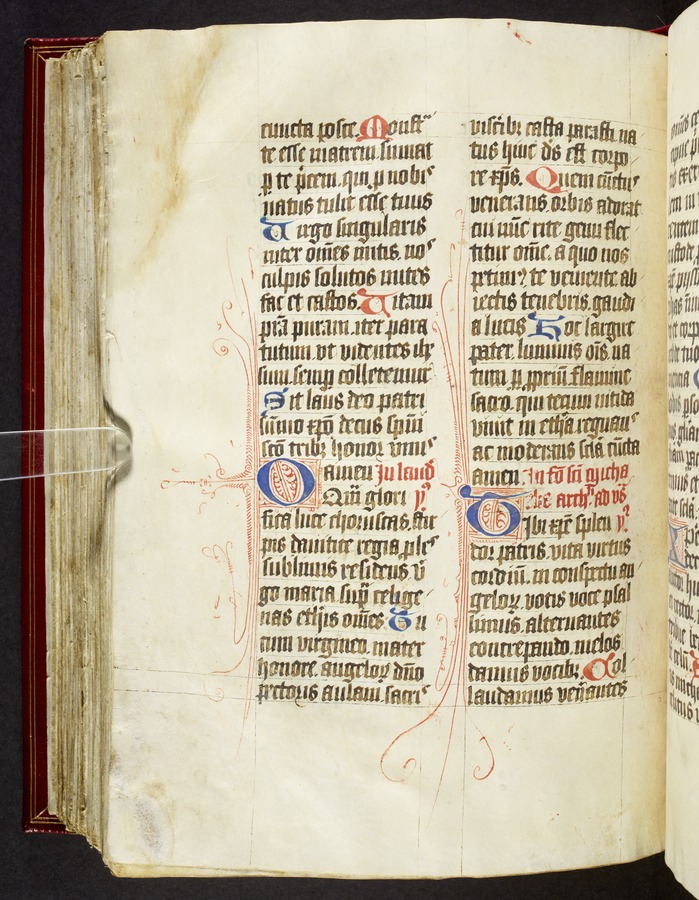 cuncta posce. Monst
te esse matrem sumat
p te p̄cem. qui p nobis
natus tulit esse tuus
Virgo singularis
inter om̄es mitis. nos
culpis solutos mites
fac et castos. Vitam
pr̄a puram. iter para
tutum. vt videntes ih̄
sum semp colletemur
Sit laus deo patri
sūmo xp̄o decus sp̄ui
sc̄o tribꝫ honor vnus
amen In laud
O Quā glori ymꝰ
fica luce choruscas. stir
pis dauitice regia ples
sublimis residens. v̄
go maria sup celige
nas eth̄is om̄es. Tu
cum virgineo. mater
honore. angeloꝝ dn̄o
pectoris aulam. sacris
viscibꝫ casta parasti. na
tus hinc d̄s est corpo
re xp̄s. Quem cūctus
venerans. orbis adorat
cui nūc rite genu flec
titur om̄e. a quo nos
petimꝰ te veniente ab
iectis tenebris. gaudi
a lucis Hoc largire
pater. luminis om̄s. na
tum p p̄prium. flamine
sacro. qui tecum nitida
viuit in eth̄a regnans
ac moderans sc̄la cūcta
amen. In fō sc̄i mycha
Tibi xp̄e splen
dor patris. vita virtus
cordiū. in conspectu an
geloꝝ. votis voce psal
limus. alternantes
concrepando. melos
damus vocibꝫ. Col
laudamus ven̄antes